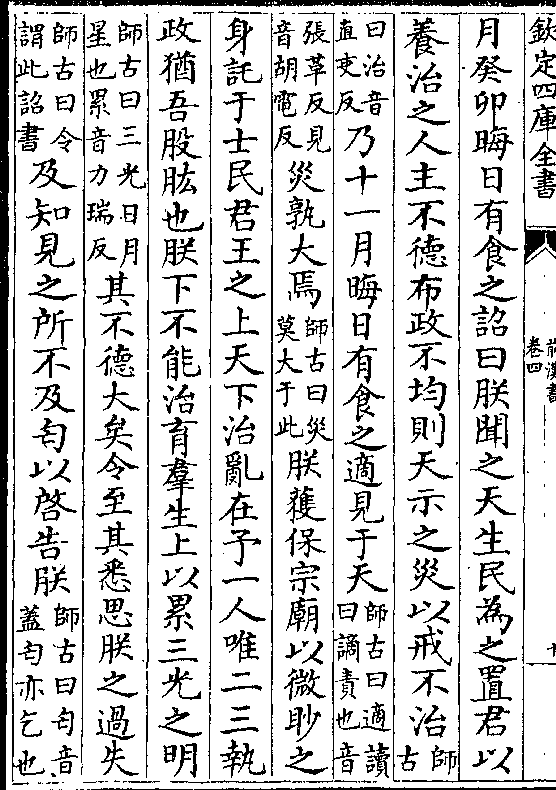 欽定四庫全書
前漢書
卷四
十
月癸卯晦日有食之詔曰朕聞之天生民為之置君以
養治之人主不德布政不均則天示之災以戒不治師古
曰治音直吏反乃十一月晦日有食之適見于天師古曰適讀曰謫責也音
張革反見音胡電反災孰大焉師古曰災莫大于此朕獲保宗廟以微眇之
身託于士民君王之上天下治亂在予一人唯二三執
政猶吾股肱也朕下不能治育羣生上以累三光之明
師古曰三光日月星也累音力瑞反其不德大矣令至其悉思朕之過失
師古曰令謂此詔書及知見之所不及匄以啓告朕師古曰匄音蓋匄亦乞也